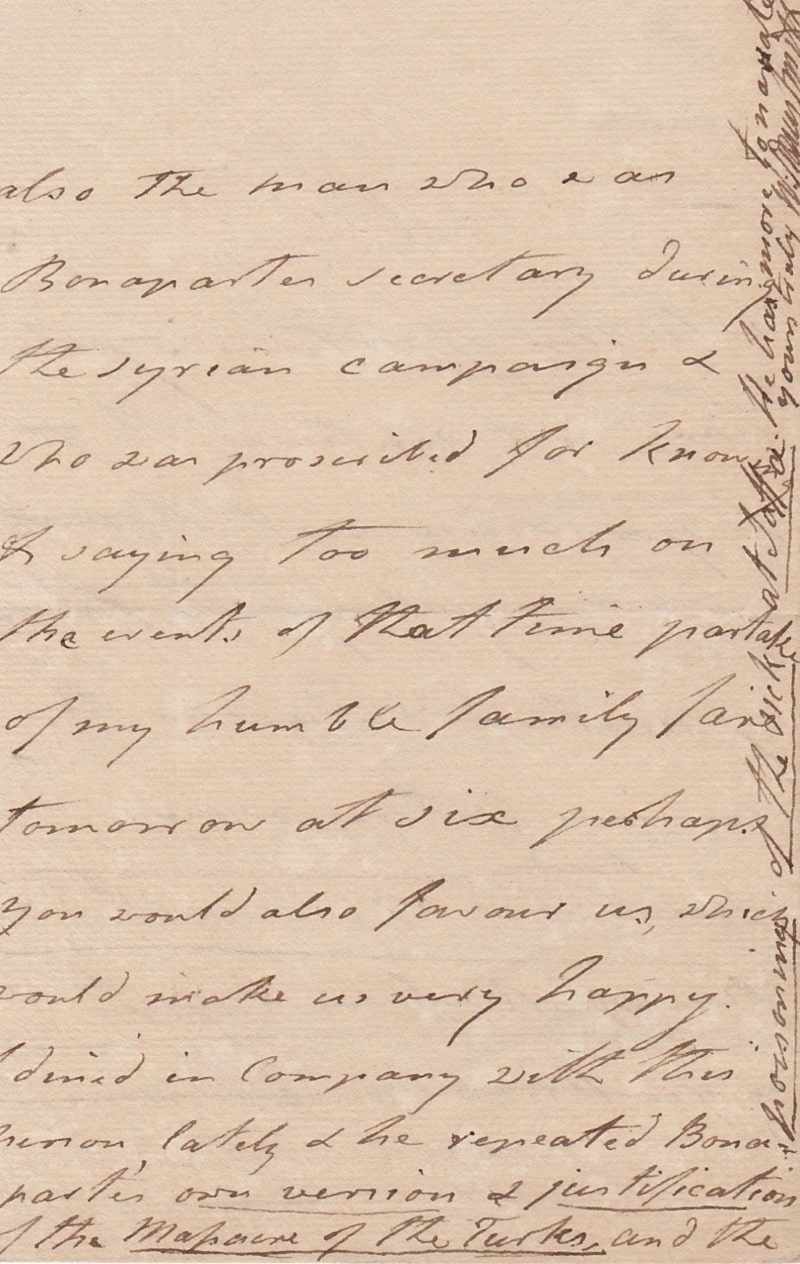 also the man who was
Bonapartes secretary during
the syrian campaign &
who was proscribed for know
& saying too much on
the events of that time partake
of my humble family fare
tomorrow at six perhaps
you would also favour us, which
would make us very happy.
I dined in Company with this
person, lately & he repeated Bona-
parte's own version & justification
of the Massacre of the Turks, and the
poisoning of the sick at Jaffa. He has more to narrate
yours truly W Sidney Smith